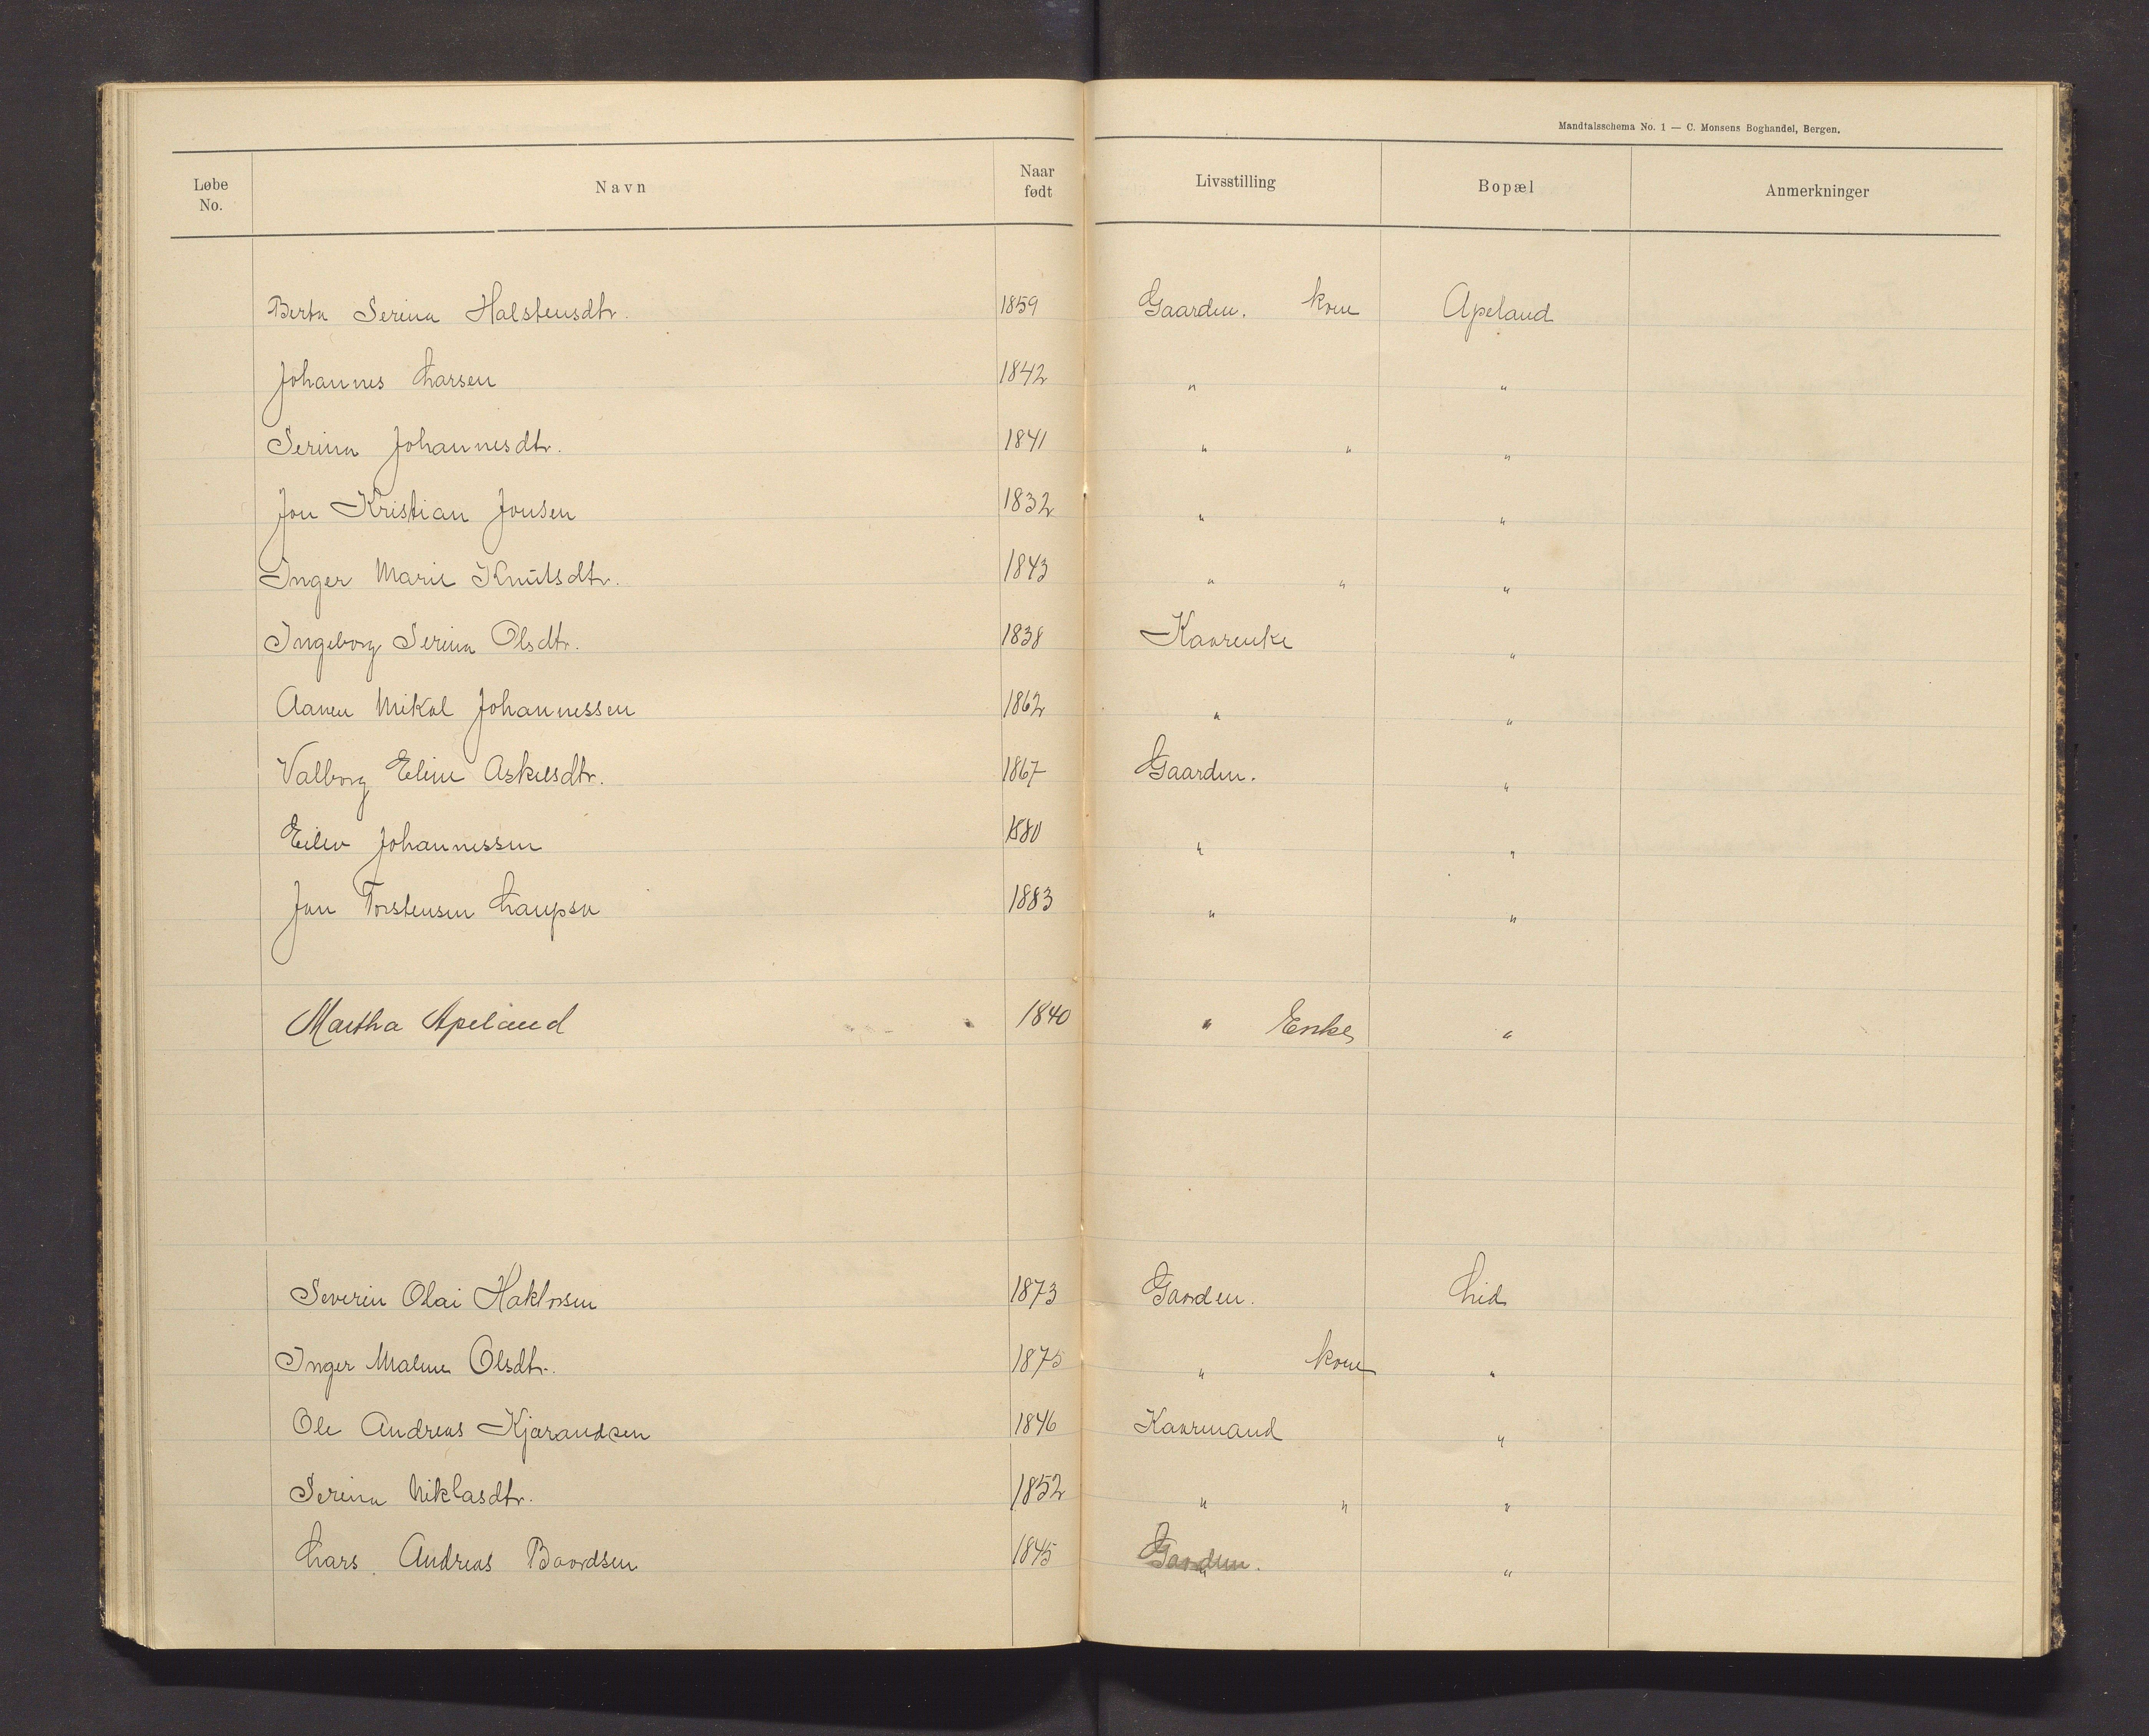 Mandtalsschema No. 1 — C. Monsens Boghandel, Bergen.
Løbe No. Navn Naar født Livsstilling Bopæl Anmerkninger
Berta Serina Halstensdtr. 1859 Gaardm. kone Apeland
Johannes Larsen 1842 " "
Serina Johannesdtr. 1841 " " "
Jon Kristian Jonsen 1832 " "
Inger Marie Knutsdtr. 1843 " " "
Ingeborg Serina Olsdtr. 1838 Kaarenke "
Aanen Mikal Johannessen 1862 " "
Valborg Eline Askilsdtr. 1867 Gaardm. "
Eilev Johannessen 1880 " "
Jon Torstensen Laupsa 1883 " "
Martha Apeland 1840 " Enke "
Severin Olai Haktorsen 1873 Gaardm. Lid
Inger Maline Olsdtr. 1875 " kone "
Ole Andreas Kjærandsen 1846 Kaarmand "
Serina Niklasdtr. 1852 " " "
Lars Andreas Baardsen 1845 Gaardm. " "